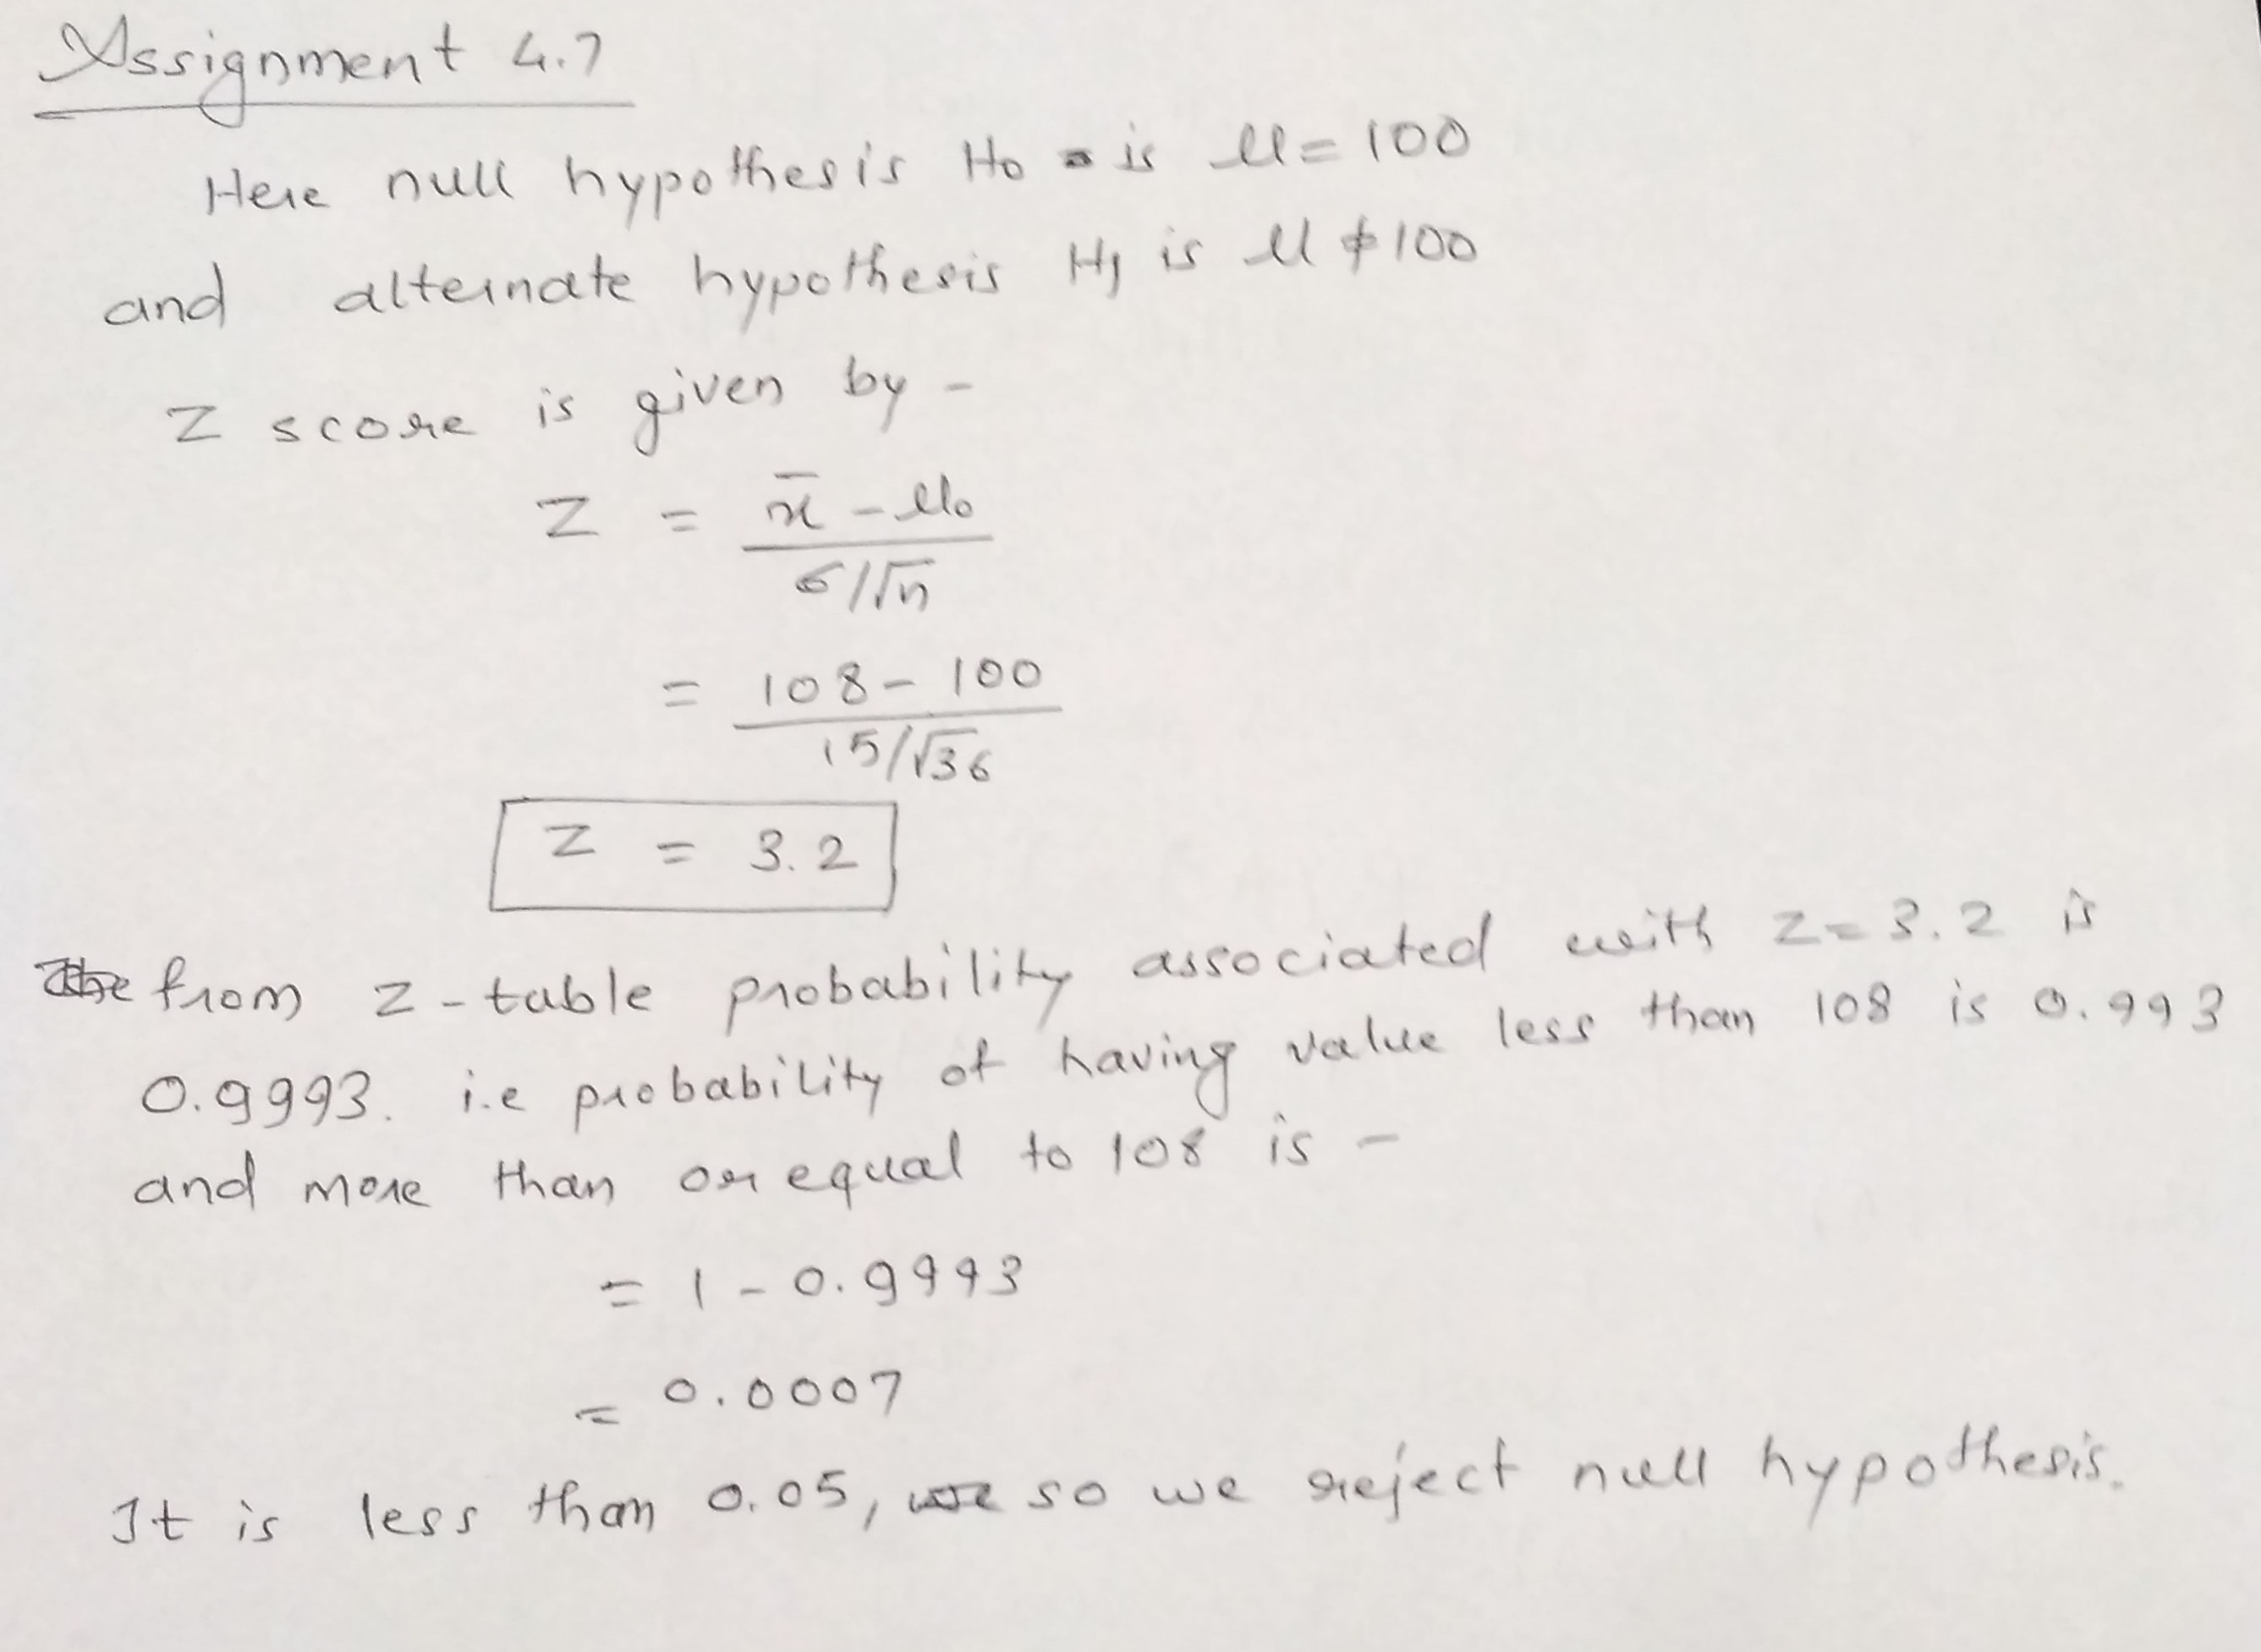 Assignment 4.7
Here null hypothesis H₀ is μ = 100
and alternate hypothesis H₁ is μ ≠ 100
Z score is given by -
Z = x̄ - μ₀
σ/√n
= 108 - 100
15/√36
Z = 3.2
from z-table probability associated with z = 3.2 is
0.9993. i.e probability of having value less than 108 is 0.993
and more than or equal to 108 is -
= 1 - 0.9993
= 0.0007
It is less than 0.05, so we reject null hypothesis.